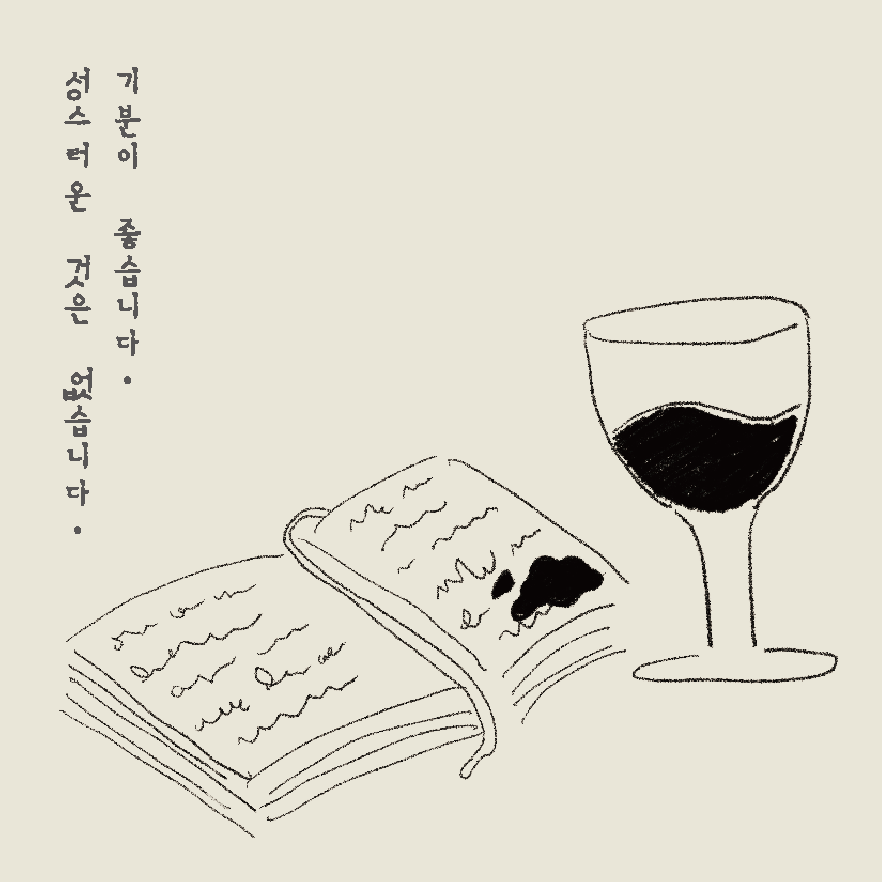 기분이 좋습니다.
성스러운 것은 없습니다.